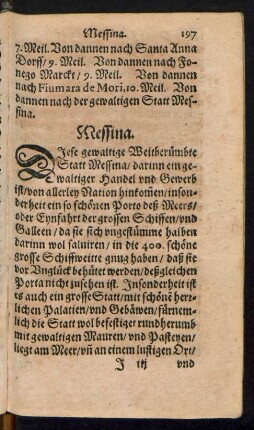 Messina. 197
7. Meil. Von dannen nach Santa Anna
Dorff/ 9. Meil. Von dannen nach Fo-
nego Marckt/ 9. Meil. Von dannen
nach Fiumara de Mori, 10. Meil. Von
dannen nach der gewaltigen Statt Mes-
sina.
Messina.
DIese gewaltige Weltberümbte
Statt Messina/ darinn ein ge-
waltiger Handel vnd Gewerb
ist/ von allerley Nation hinkom̃en/ inson-
derheit ein so schönen Porto deß Meers/
oder Eynfahrt der grossen Schiffen/ vnd
Galleen/ da sie sich vngestümme halben
darinn wol saluiren/ in die 400. schöne
grosse Schiff weitte gnug haben/ daß sie
vor Vnglück behütet werden/ deßgleichen
Porta nicht zusehen ist. Insonderheit ist
es auch ein grosse Statt/ mit schöne herr-
lichen Palatien/ vnd Gebäwen/ fürnem-
lich die Statt wol befestiget rundherumb
mit gewaltigen Mauren/ vnd Pasteyen/
liegt am Meer/ vñ an einem lustigen Ort/
I iij vnd